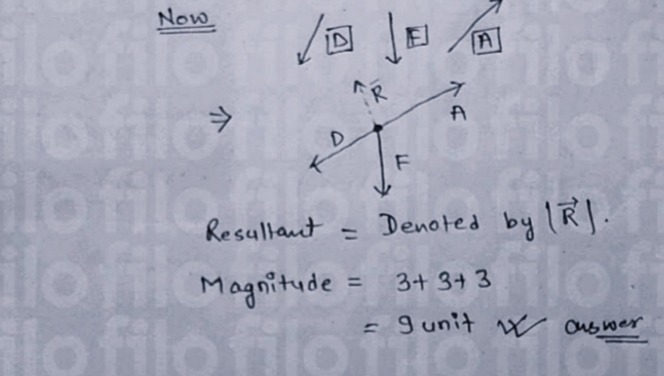 Now
D F A
⇒ R
A
D
F
Resultant = Denoted by |R⃗|.
Magnitude = 3+3+3
= 9 unit answer